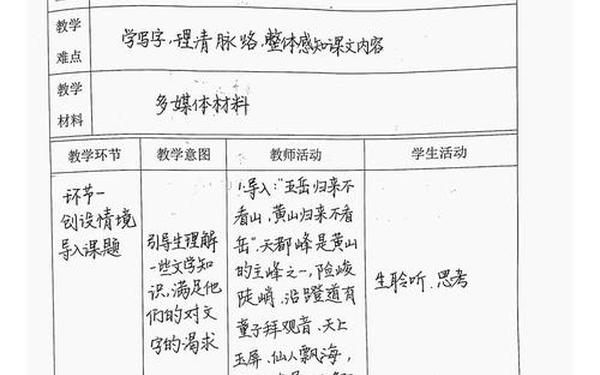 教学
难点
学写字，理清脉络，整体感知课文内容
教学
材料
多媒体材料
教学环节
教学意图
教师活动
学生活动
环节一
创设情境
导入课题
引导生理解
一些文学知
识，满足他
们的对文
字的渴求
1.导入：“五岳归来不
看山，黄山归来不看
岳”。天都峰是黄山
的主峰之一，险峻
陡峭，沿蹬道有
童子拜观音、天上
玉屏、仙人飘海，
生聆听、思考